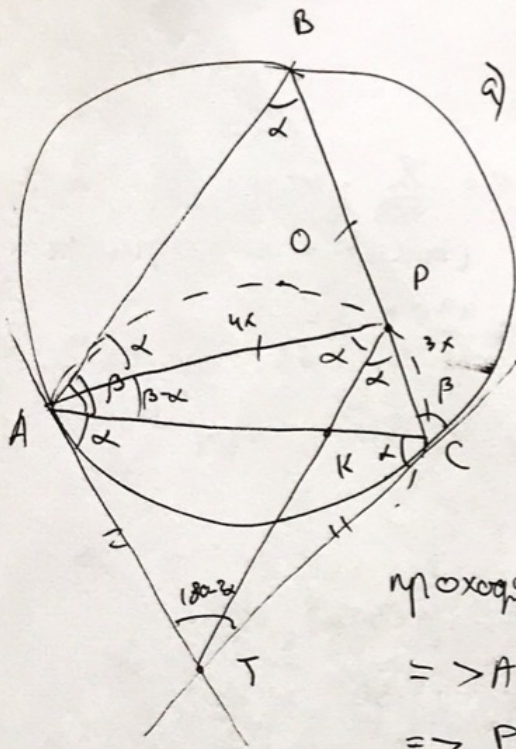 B
а)
α
O
P
4x
α
α
α
3x
β
β
β-α
A
α
K
α
C
180-2α
T
проход
=> A
=> P